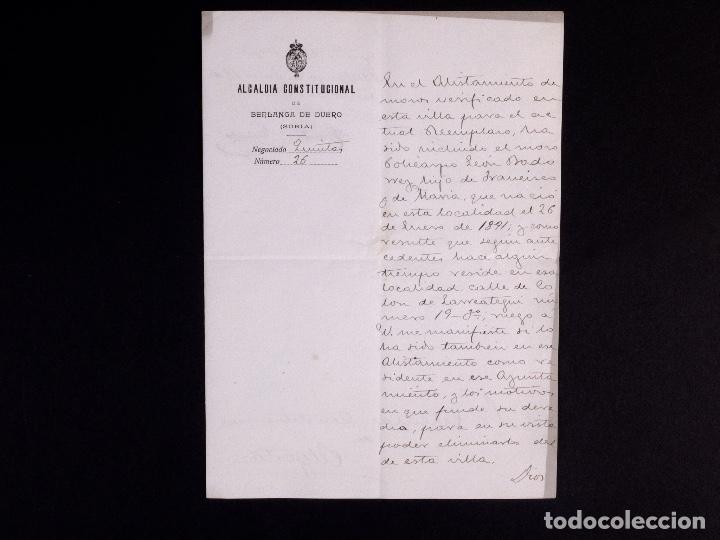 ALCALDIA CONSTITUCIONAL
DE
BERLANGA DE DUERO
(SORIA)
Negociado Quintas
Número 26
En el Alistamiento de
mozos verificado en
esta villa para el ac
tual Reemplazo, ha
sido incluido el mozo
Policarpo León
hijo de Francisco
y de Maria, que nació
en esta localidad el 26
de Enero de 1891; y como
resulte que según ante
cedentes hace algún
tiempo reside en esa
localidad calle de Co
lon de Larreategui nú
mero 19-3º, ruego a
V. me manifieste si lo
ha sido tambien en ese
Alistamiento como re
sidente en ese Ayunta
miento, y los motivos
en que funde su
para en su vista
poder eliminarlo del
de esta villa.
Dios
todocoleccion
todocoleccion.net